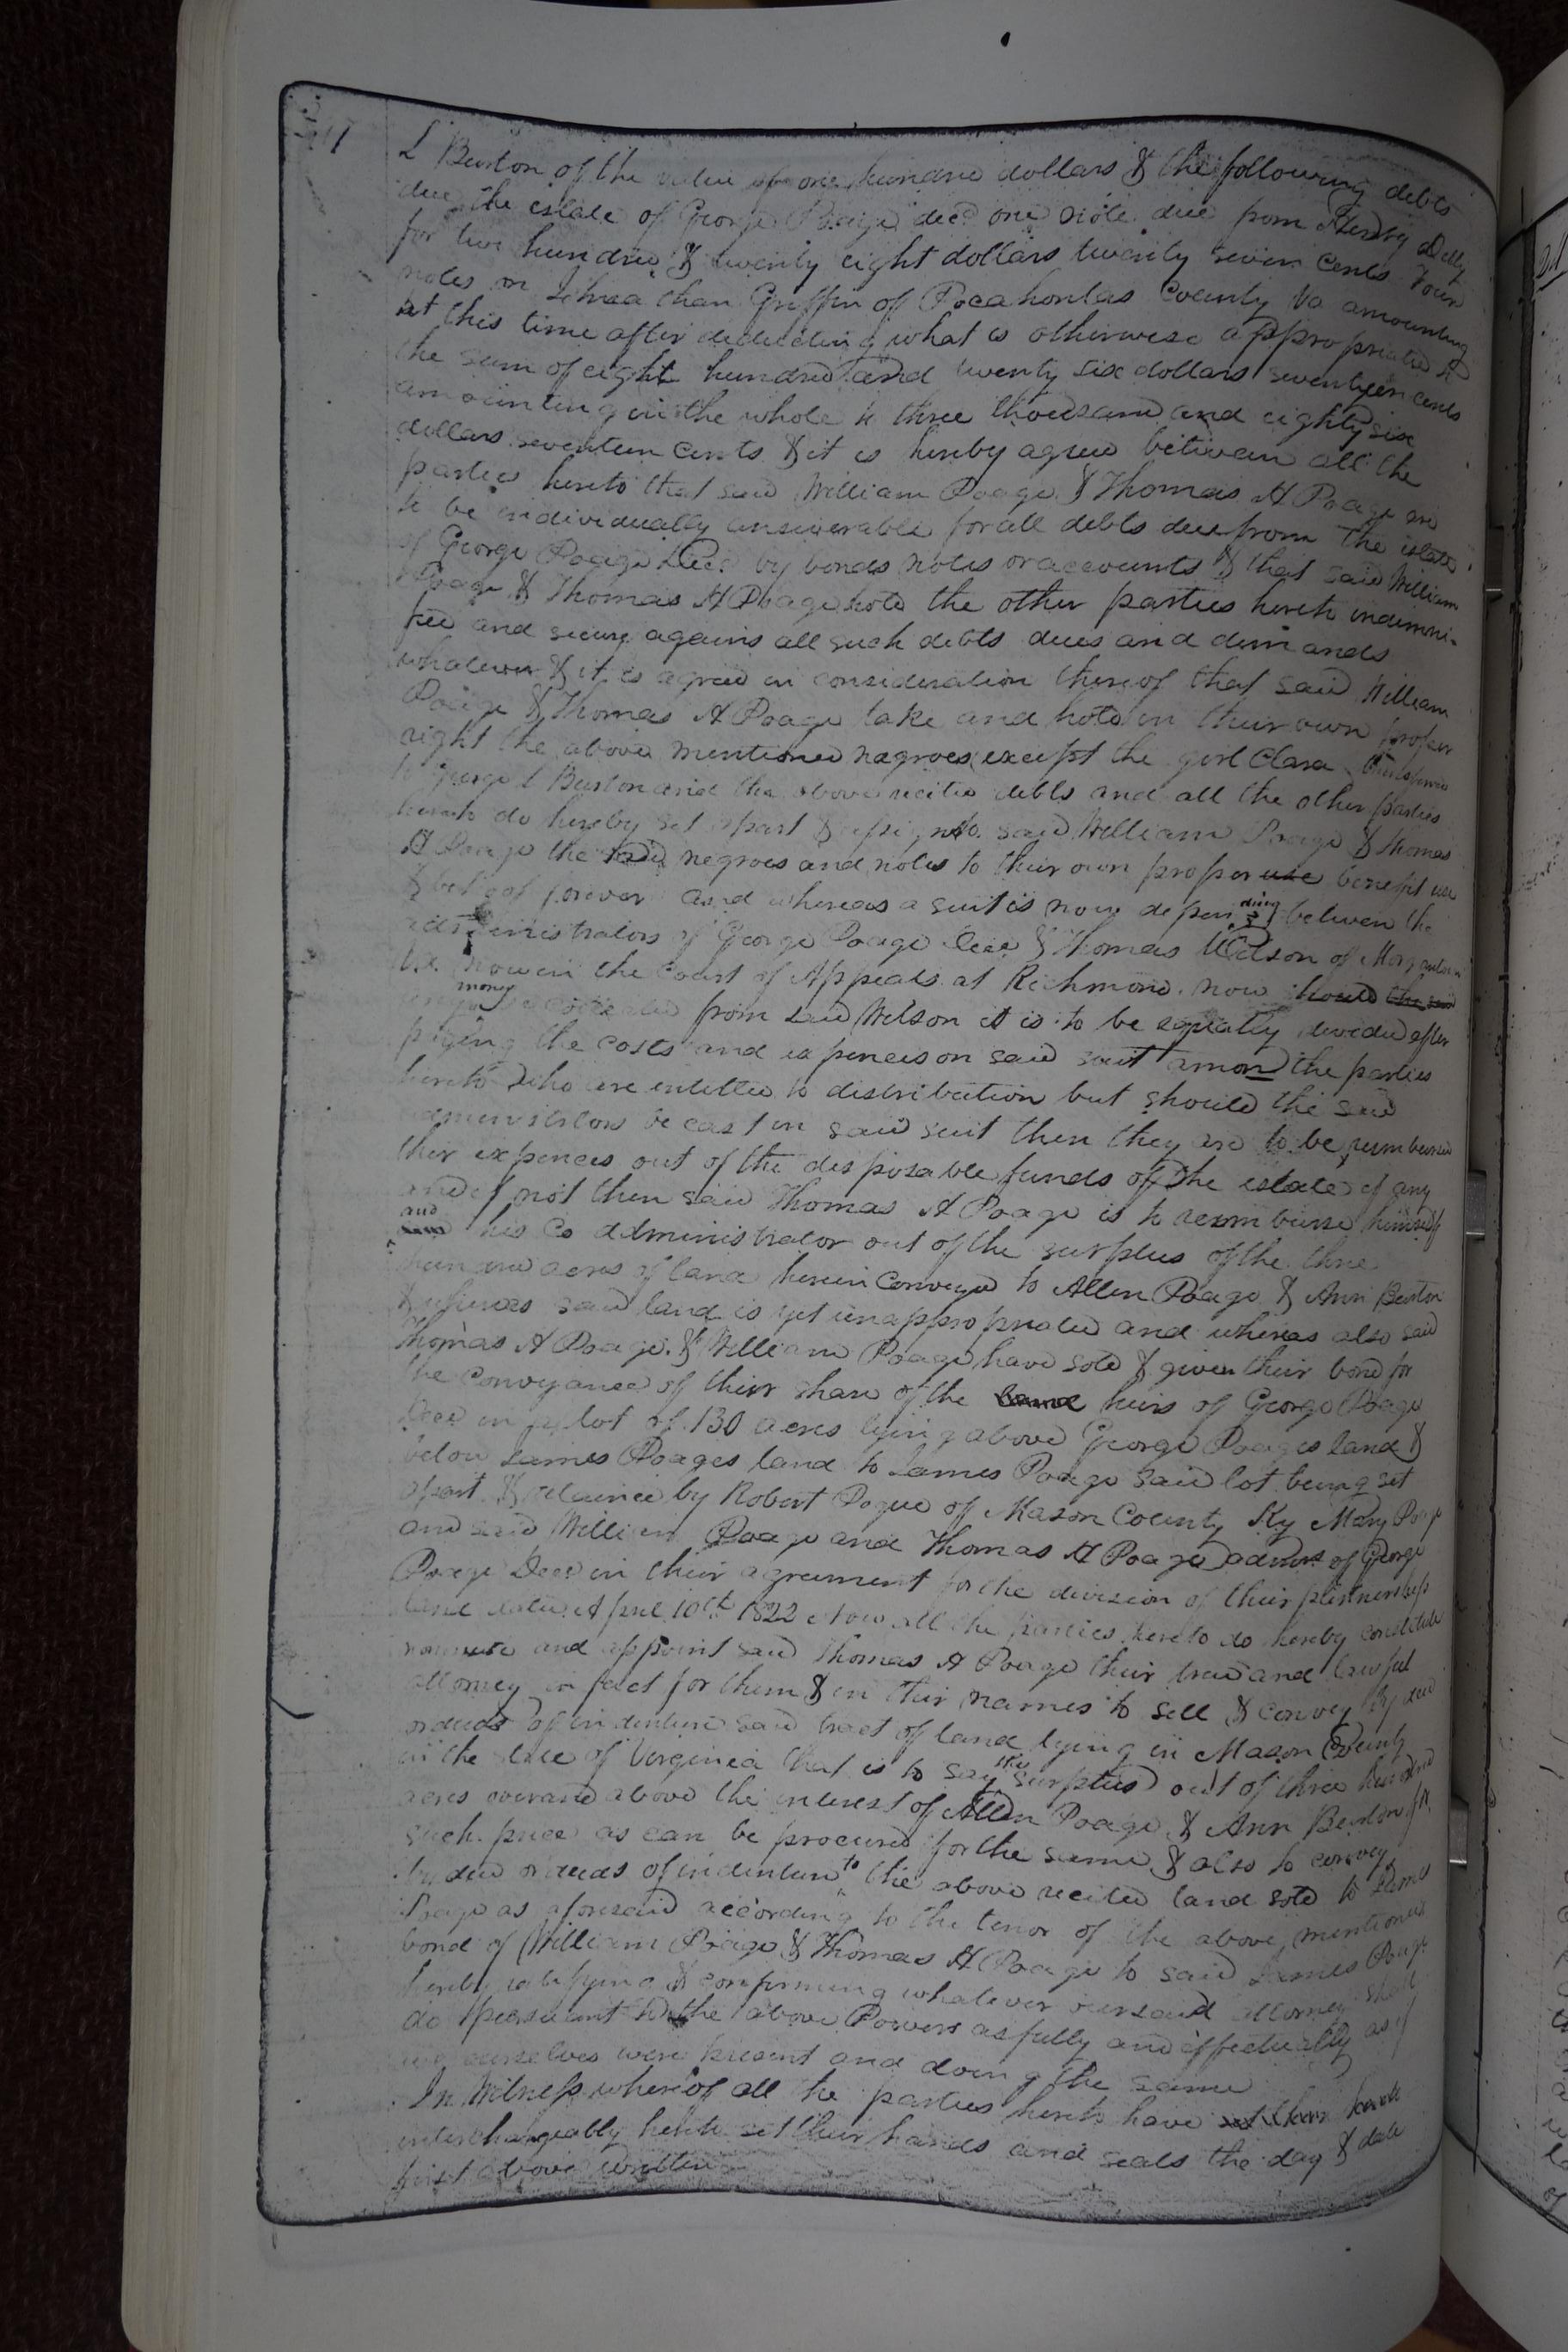 L Burton of the value of one hundred dollars & the following debts
due the estate of George Poage decd one note due from Henry
for two hundred & twenty eight dollars twenty seven cents Four
notes on Johnathan Griffin of Pocahontas County Va amounting
at this time after deducting what is otherwise appropriated to
the sum of eight hundred and twenty six dollars seventeen cents
amounting in the whole to three thousand and eighty six
dollars seventeen cents & it is hereby agreed between all the
parties hereto that said William Poage & Thomas H Poage are
to be individually answerable for all debts due from the estate
of George Poage Decd by bonds notes or accounts & that said William
Poage & Thomas H Poage hold the other parties hereto indemni-
fied and secure agains all such debts dues and demands
whatever & it is agreed in consideration thereof that said William
Poage & Thomas H Poage take and hold in their own proper
right the above mentioned negroes except the girl Clara
to George L Burton and the above recited debts and all the other parties
hereto do hereby set apart & assign to said William Poage & Thomas
H Poage the said negroes and notes to their own proper use benefit use
& behoof forever and whereas a suit is now depending between the
administrators of George Poage Decd & Thomas Wilson of Morgantown
Va now in the Court of Appeals at Richmond now should the said
money from said Wilson it is to be equally divided after
paying the costs and expences on said suit among the parties
hereto who are intitled to distribution but should the said
administrators be cast in said suit then they are to be reimbursed
their expences out of the disposable funds of the estate if any
and if not then said Thomas H Poage is to reimburse himself
and his Co administrator out of the surplus of the three
hundred acres of land herein conveyed to Allen Poage & Ann Burton
& whereas said land is yet unappropriated and whereas also said
Thomas H Poage & William Poage have sold & given their bond for
the conveyance of their share of the land heirs of George Poage
Decd in lot of 130 acres lying above George Poages land &
below James Poages land to James Poage said lot being set
apart & retained by Robert Pogue of Mason County Ky Mary Poage
and said William Poage and Thomas H Poage admrs of George
Poage Decd in their agreement for the division of their partnership
land dated April 10th 1822 Now all the parties hereto do hereby constitute
nominate and appoint said Thomas H Poage their true and lawful
attorney in fact for them & in their names to sell & convey by deed
or deeds of indenture said tract of land lying in Mason County
in the state of Virginia that is to say the surplus out of three hundred
acres over and above the interest of Allen Poage & Ann Burton for
such price as can be procured for the same & also to convey
by deed or deeds of indenture to the above recited land sold to James
Poage as aforesaid according to the tenor of the above mentioned
bond of William Poage & Thomas H Poage to said James Poage
hereby ratifying & confirming whatever our said attorney shall
do persuant to the above Powers as fully and effectually as if
we ourselves were present and doing the same
In Witness whereof all the parties hereto have set their
interchangeably set their hands and seals the day & date
first above written